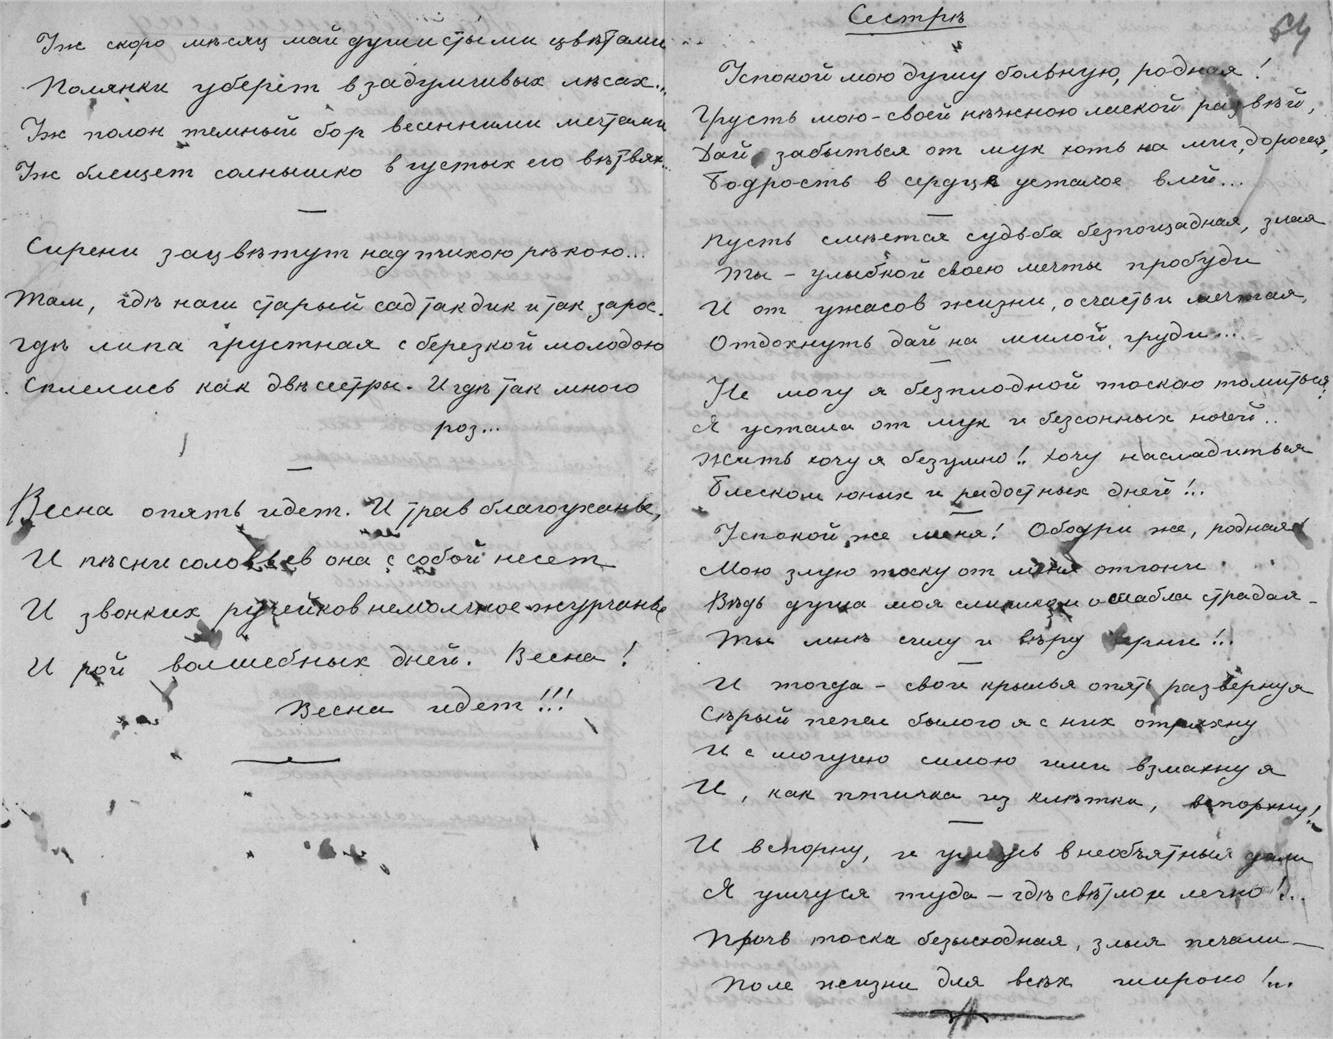 Уж скоро мѣсяц май душистыми цвѣтами
Полянки уберет в задумчивых лѣсах...
Уж полон темный бор весенними мечтами
Уж блещет солнышко в густых его вѣтвях...
—
Сирени зацвѣтут над тихою рѣкою...
Там, гдѣ наш старый сад так дик и так зарос.
Гдѣ липа грустная с березкой молодою
Сплелись как двѣ сестры. И гдѣ так много
роз...
—
Весна опять идет. И трав благоуханье,
И пѣсни соловьев она с собой несет
И звонких ручейков немолчное журчанье
И рой волшебных дней. Весна!
Весна идет!!!
Сестрѣ
64
Успокой мою душу больную, родная!
Грусть мою - своей нѣжною лаской развѣй,
Дай забыться от мук хоть на миг, дорогая,
Бодрость в сердце усталое влей...
—
Пусть смѣется судьба безпощадная, злая
Ты - улыбкой своею мечты пробуди
И от ужасов жизни, о счастьи мечтая,
Отдохнуть дай на милой груди...
—
Не могу я безплодной тоскою томиться,
Я устала от мук и безсонных ночей..
Жить хочу я безумно!! Хочу насладиться
Блеском юных и радостных дней!..
—
Успокой же меня! Ободри же, родная!
Мою злую тоску от меня отгони.
Вѣдь душа моя слишком ослабла страдая -
Ты мнѣ силу и вѣру верни!..
—
И тогда - свои крылья опять развернув
Сѣрый пепел былого я с них отряхну
И с могучею силою ими взмахнув
И, как птичка из клѣтки, вспорхну!..
—
И вспорхну, и умчусь в необъятныя дали
Я умчуся туда - гдѣ свѣтло и легко!..
Прочь тоска безысходная, злыя печали —
Поле жизни для всѣх широко!..